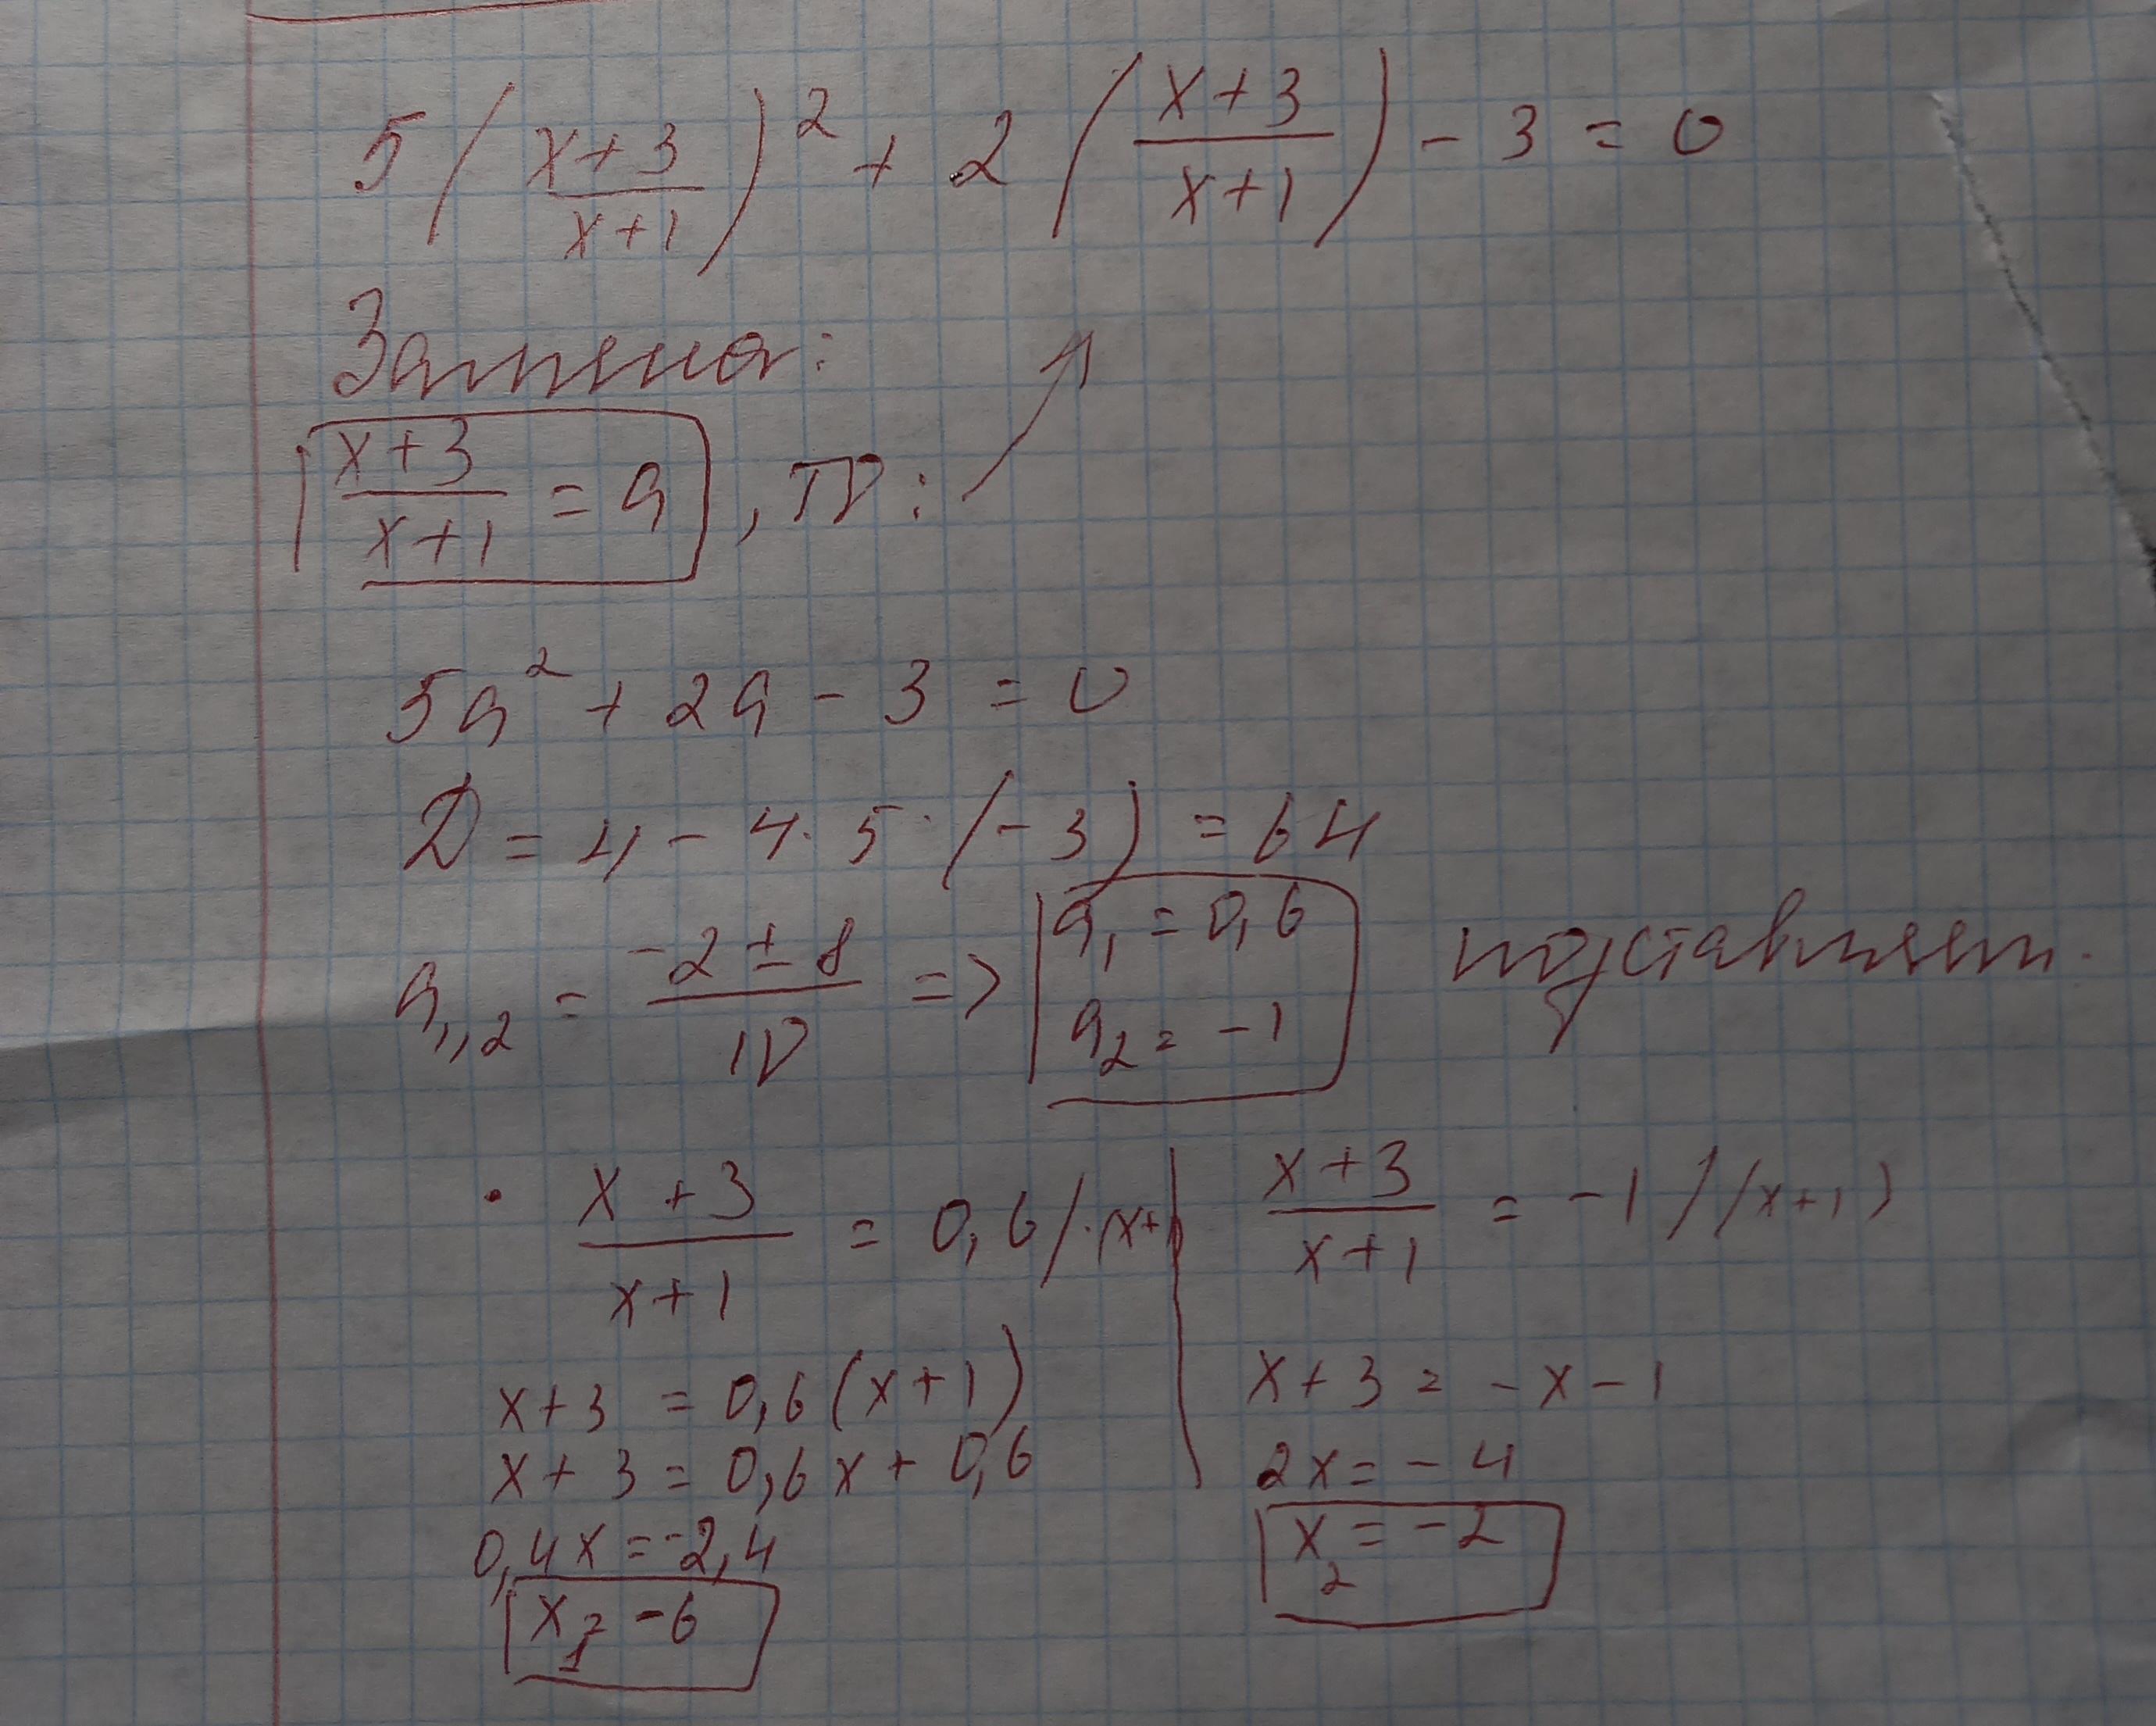 5(x+3/x+1)² + 2(x+3/x+1) - 3 = 0
Замена:
x+3/x+1 = a, то:
5a² + 2a - 3 = 0
D = 4 - 4·5·(-3) = 64
a1,2 = -2 ± 8/10 => a1 = 0,6
a2 = -1
подставляем.
· x+3/x+1 = 0,6 / ·(x+1)
x+3 = 0,6(x+1)
x+3 = 0,6x + 0,6
0,4x = -2,4
x1 = -6
x+3/x+1 = -1 / ·(x+1)
x+3 = -x-1
2x = -4
x2 = -2